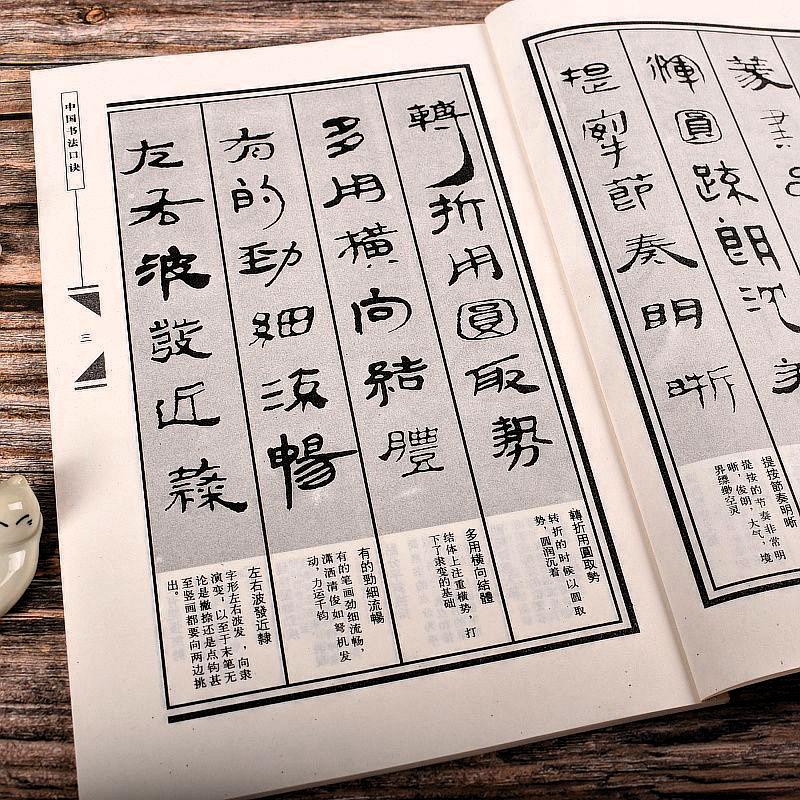 篆書
渾圓疏朗沈
提按節奏明晰
提按節奏明晰
提按的节奏非常明
晰，俊朗，大气，境
界缥缈空灵
轉折用圓取勢
多用橫向結體
有的勁細流暢
左右波發近隸
轉折用圓取勢
转折的时候以圆取
势，圆润沉着
多用橫向結體
结体上注重横势，打
下了隶变的基础
有的勁細流暢
有的笔画劲细流畅，
潇洒清俊如弩机发
动，力运千钧
左右波發近隸
字形左右波发，向隶
演变，以至于末笔无
论是撇捺还是点钩甚
至竖画都要向两边挑
出。
中国书法口诀
三